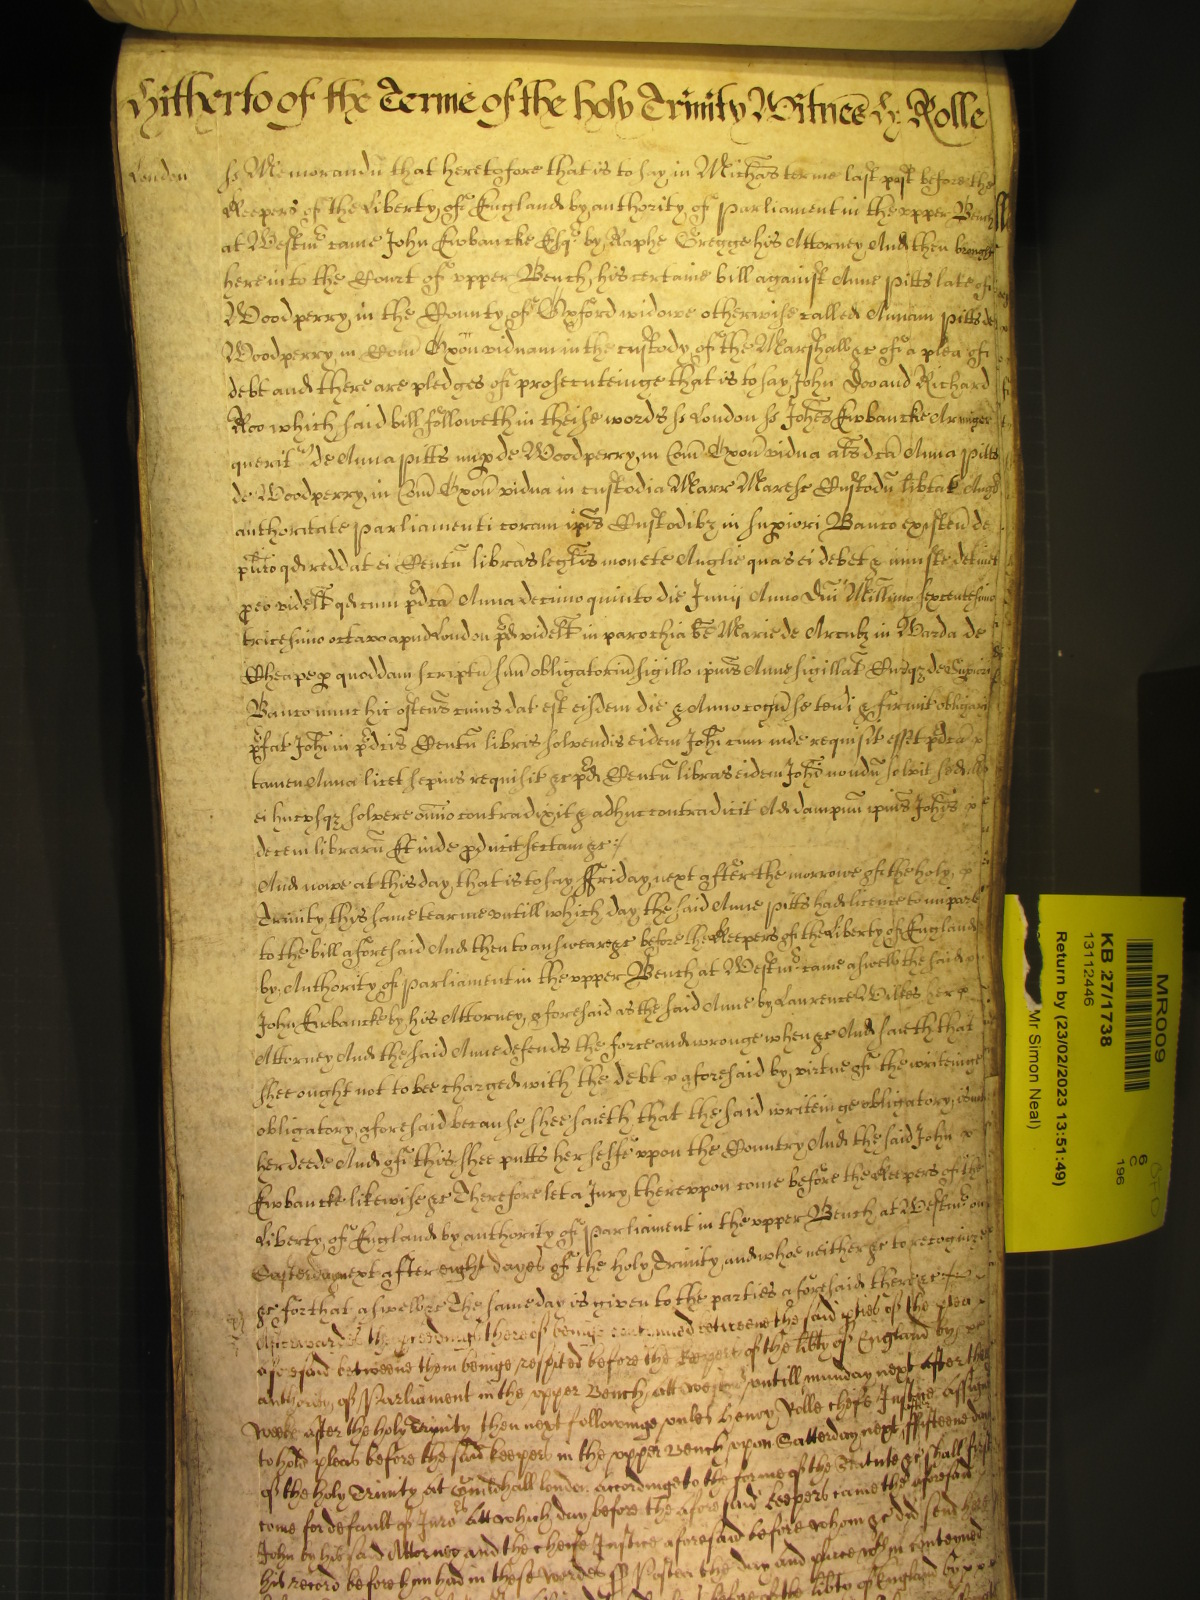 Hitherto of the Terme of the holy Trinity Witnes H: Rolle
London
ss Memorandū that heretofore that is to say in Michās terme last past before the
Keepers of the Liberty of England by authority of Parliament in the upper Bench
at Westmr came John Ewbancke Esqr by Raphe Gregge his Attorney And then brought
here into the Court of upper Bench his certaine bill against Anne Pitts late of
Woodperry in the County of Oxford widowe otherwise called Annam Pitts de
Woodperry in Com̄ Oxon̄ viduam in the custody of the Marshall &c of a plea of
debt and there are pledges of prosecuteinge that is to say John Doo and Richard
Roo which said bill followeth in theise words ss London ss Johēs Ewbancke Armiger
querit de Anna Pitts nup de Woodperry in Com̄ Oxon̄ vidua als dca Anna Pitts
de Woodperry in Com̄ Oxon̄ vidua in custodia Marr Maresc Custodū libtat Angl
authoritate Parliamenti coram ipis Custodibz in supiori Banco existen de
plito qd reddat ei Centū libras legalis monete Anglie quas ei debet & iniuste detinet
p eo videlt qd cum pdca Anna decimo quinto die Junij Anno Dn̄i Millimo sexcentesimo
tricesimo octavo apud London pd videlt in parochia be Marie de Arcubz in Warda de
Cheape p quoddam scriptū suū obligatoriū sigillo ipius Anne sigillat Curqz de Supiori
Banco nunc hic ostens cuius dat est eisdem die & Anno cogn se teneri & firmit obligari
pfat Johi in pdcis Centū libris solvendis eidem Johi cum inde requisit esset pdca
tamen Anna licet sepius requisit &c pd Centū libras eidem Johi nondū solvit sed ill
ei hucusqz solvere omīo contradixit & adhuc contradicit Ad dampnū ipius Johis
decem librarū Et inde pducit sectam &c
And nowe at this day that is to say ffriday next after the morrowe of the holy
Trinity this same tearme untill which day the said Anne Pitts had licence to imparle
to the bill aforesaid And then to answeare &c before the Keepers of the Liberty of England
by Authority of Parliament in the upper Bench at Westmr came aswell the said
John Ewbancke by his Attorney aforesaid as the said Anne by Laurence Willes her
Attorney And the said Anne defends the force and wronge when &c And saieth that
shee ought not to bee charged with the debt aforesaid by virtue of the writeinge
obligatory aforesaid because shee saieth that the said writeinge obligatory is not
her deede And of this shee putts her selfe upon the Country And the said John
Ewbancke likewise &c Therefore let a Jury thereupon come before the Keepers of the
Liberty of England by authority of Parliament in the upper Bench at Westmr on
next after eight dayes of the holy Trinity and whoe neither &c to recognize
&c for that aswell &c The same day is given to the parties aforesaid there &c
Afterwards the thereof beinge continued betweene the said pties of the plea
aforesaid betweene them beinge respited before the Keepers of the libty of England by
authority of Parliament in the upper Bench att untill munday next after three
weeks after the holy Trinity then next followinge unles Henry Rolle cheife Justice assigned
to hold pleas before the said keepers in the upper Bench upon Satterday next after ffifteene dayes
of the holy Trinity at Guildhall london accordinge to the forme of the Statute &c shall first
come for default of Juro:rs Att which day before the aforesaid keepers came the aforesaid
John by his said Attorney and the cheife Justice aforesaid before whom &c did send here
his record before him had in these wordes ss Postea the day and place wthin conteyned
before the libty of England by
MR009
KB 27/1738
13112446
Return by (23/02/2023 13:51:49)
Mr Simon Neal)
6
C
196